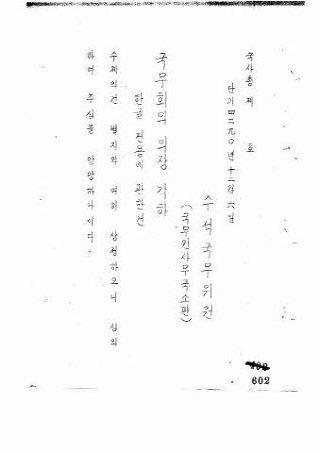 국사총 제 호
단기四二九〇년十二월六일
수석국무위원
(국무원사무국소관)
국무회의 의장 각하
한글 전용에 관한건
수제의건 별지와 여히 상정하오니 심의
하여 주심을 앙망하나이다.
602